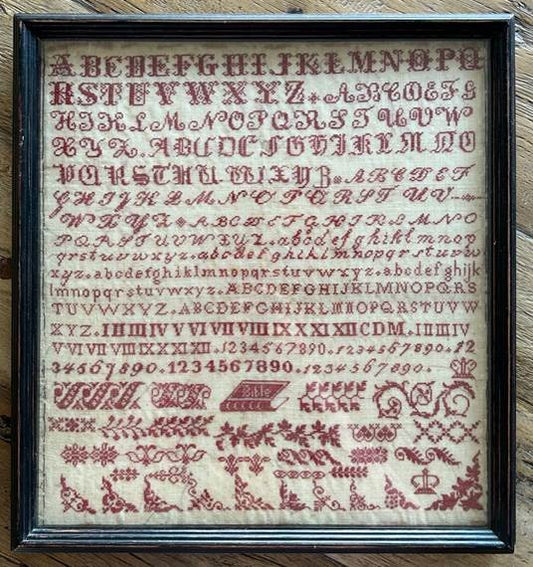 ABCDEFGHIJKLMNOPQ
RSTUVWXYZ*ABCDEFG
HIJKLMNOPQRSTUVW
XYZ.ABCDEFGHIKLMNO
PQRSTUVWXYZ*ABCDEF
GHIJKLMNOPQRSTUV
WXYZ*ABCDEFGHIKLMNO
PQRSTUVWXYZ.abcdefghiklmnop
qrstuvwxyz.abcdefghiklmnopqrstuvw
xyz.abcdefghiklmnopqrstuvwxyz.abcdefghijk
lmnopqrstuvwxyz.ABCDEFGHIJKLMNOPQRS
TUVWXYZ.ABCDEFGHIJKLMNOPQRSTUVW
XYZ.IIIIIIIVVVIVIIVIIIIXXXIXIICDM.IIIIIIIV
VVIVIIVIIIIXXXIXII.1234567890.1234567890.12
34567890.1234567890.1234567890.
Bible